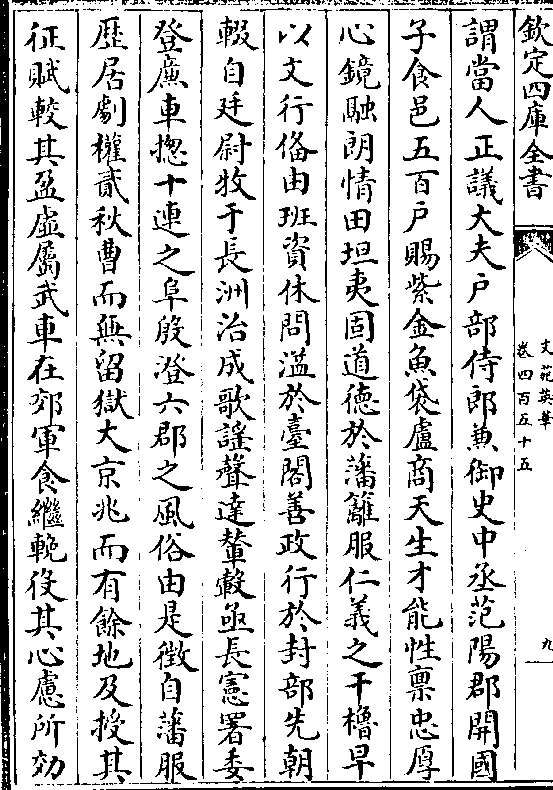 欽定四庫全書
文苑英華
卷四百五十五
九
謂當人正議大夫户部侍郎兼御史中丞范陽郡開國
子食邑五百户賜紫金魚袋盧商天生才能性禀忠厚
心鏡融朗情田坦夷固道德於藩籬服仁義之干櫓早
以文行偹由班資休問溢於臺閣善政行於封部先朝
輟自廷尉牧于長洲治成歌謠聲達輦轂亟長憲署委
登廉車揔十連之阜殷澄六郡之風俗由是徴自藩服
歴居劇權貳秋曹而無留獄大京兆而有餘地及授其
征賦較其盈虚屬武車在郊軍食繼輓役其心慮所効